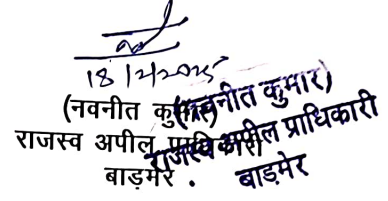 18/2/2025
(नवनीत कुमार)
राजस्व अपील प्राधिकारी
बाड़मेर .
(नवनीत कुमार)
राजस्व अपील प्राधिकारी
बाड़मेर